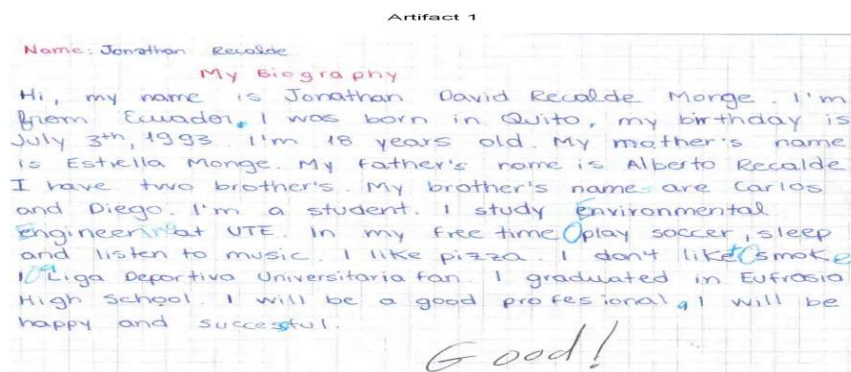 Artifact 1
Name: Jonathan Recalde
My Biography
Hi, my name is Jonathan David Recalde Monge. I'm
from Ecuador. I was born in Quito, my birthday is
July 3th, 1993. I'm 18 years old. My mother's name
is Estrella Monge. My father's name is Alberto Recalde
I have two brother's. My brother's names are Carlos
and Diego. I'm a student. I study Environmental
Engineering at UTE. In my free time play soccer, sleep
and listen to music. I like pizza. I don't like to smoke
a Liga Deportiva Universitaria fan. I graduated in Eufrasia
High School. I will be a good profesional, I will be
happy and successful.
Good!